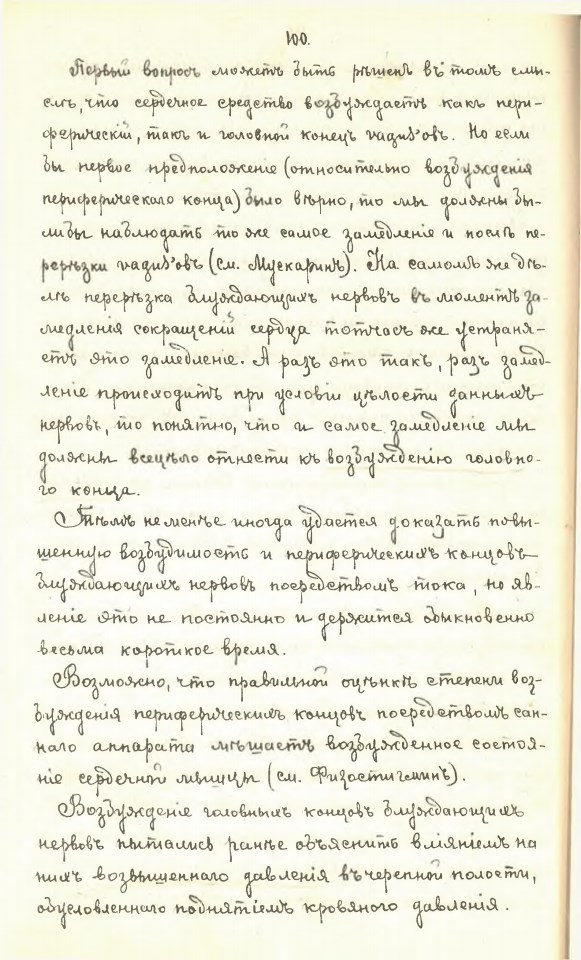 100.
Первый вопросъ можетъ быть рѣшенъ въ томъ смы-
слѣ, что сердечное средство возбуждаетъ какъ пери-
ферическій, такъ и головной конецъ vagus'овъ. Но если
бы первое предположеніе (относительно возбужденія
периферическаго конца) было вѣрно, то мы должны бы-
ли бы наблюдать то же самое замедленіе и послѣ пе-
рерѣзки vagus'овъ (см. Мускаринъ). На самомъ же дѣ-
лѣ перерѣзка блуждающихъ нервовъ въ моментъ за-
медленія сокращеній сердца тотчасъ же устраня-
етъ это замедленіе. А разъ это такъ, разъ замед-
леніе происходитъ при условіи цѣлости данныхъ
нервовъ, то понятно, что и самое замедленіе мы
должны всецѣло отнести къ возбужденію головно-
го конца.
Тѣмъ не менѣе иногда удается доказать повы-
шенную возбудимость и периферическихъ концовъ
блуждающихъ нервовъ посредствомъ тока, но яв-
леніе это не постоянно и держится обыкновенно
весьма короткое время.
Возможно, что правильной оцѣнкѣ степени воз-
бужденія периферическихъ концовъ посредствомъ сан-
наго аппарата мѣшаетъ возбужденное состоя-
ніе сердечной мышцы (см. Физостигминъ).
Возбужденіе головныхъ концовъ блуждающихъ
нервовъ пытались ранѣе объяснить вліяніемъ на
нихъ возвышеннаго давленія въ черепной полости,
обусловленнаго поднятіемъ кровяного давленія.